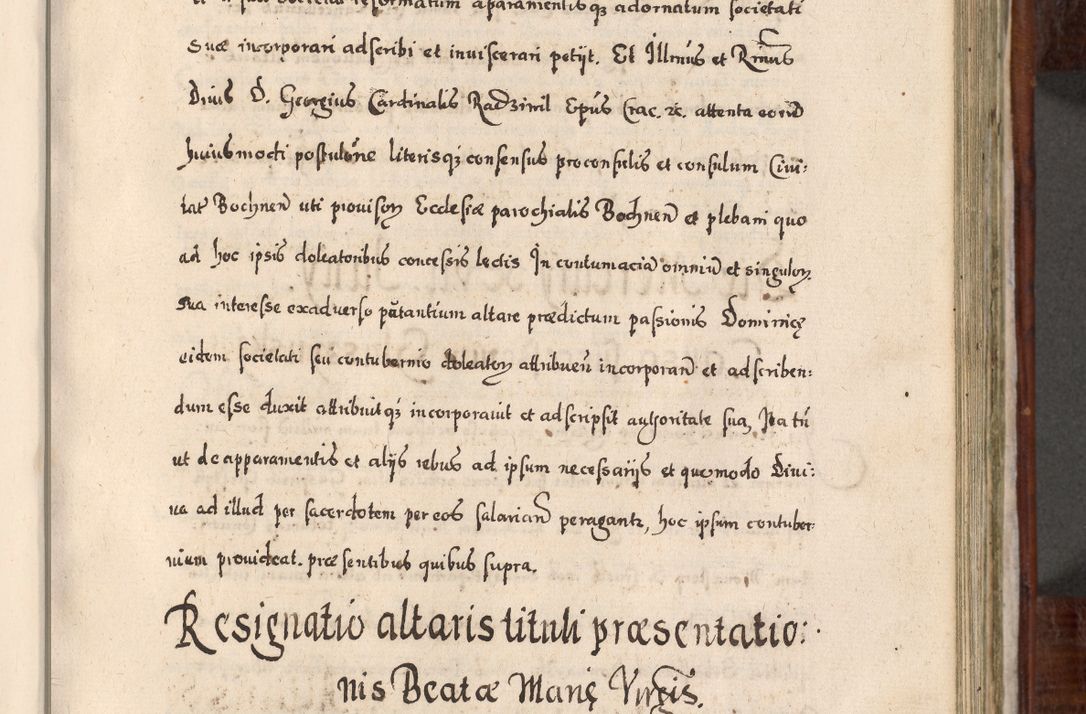 reformatum aparamentisqꝫ adornatum societati
suæ incorporari adscribi et inviscerari petijt. Et Illmús et Rmús
Dnús D. Georgius Cardinalis Radziwil Epús Crac. ꝛc. attenta eorū
huiusmodi postulóne literisqꝫ consensus proconsulis et consulum Civi:
tat Bochneñ uti provisoꝝ Ecclesiæ parochialis Bochneñ et plebani quo
ad hoc ipsis doleatoribus concessis lectis In contumaciā omniū et singuloꝝ
sua interesse exadverso putantium altare prædictum passionis Dominicę
eidem societati seu contubernio doleatoꝝ attribueñ incorporañ et adscriben:
dum esse duxit attribuitqꝫ incorporavit et adscripsit authoritate sua, Ita tń
ut de apparamentis et alijs rebus ad ipsum necessarijs et quomodo Divi:
na ad illud per sacerdotem per eos salariañ peragant, hoc ipsum contuber:
nium provideat. præsentibus quibus supra.
Resignatio altaris tituli præsentatio:
nis Beatæ Marię Virgis.